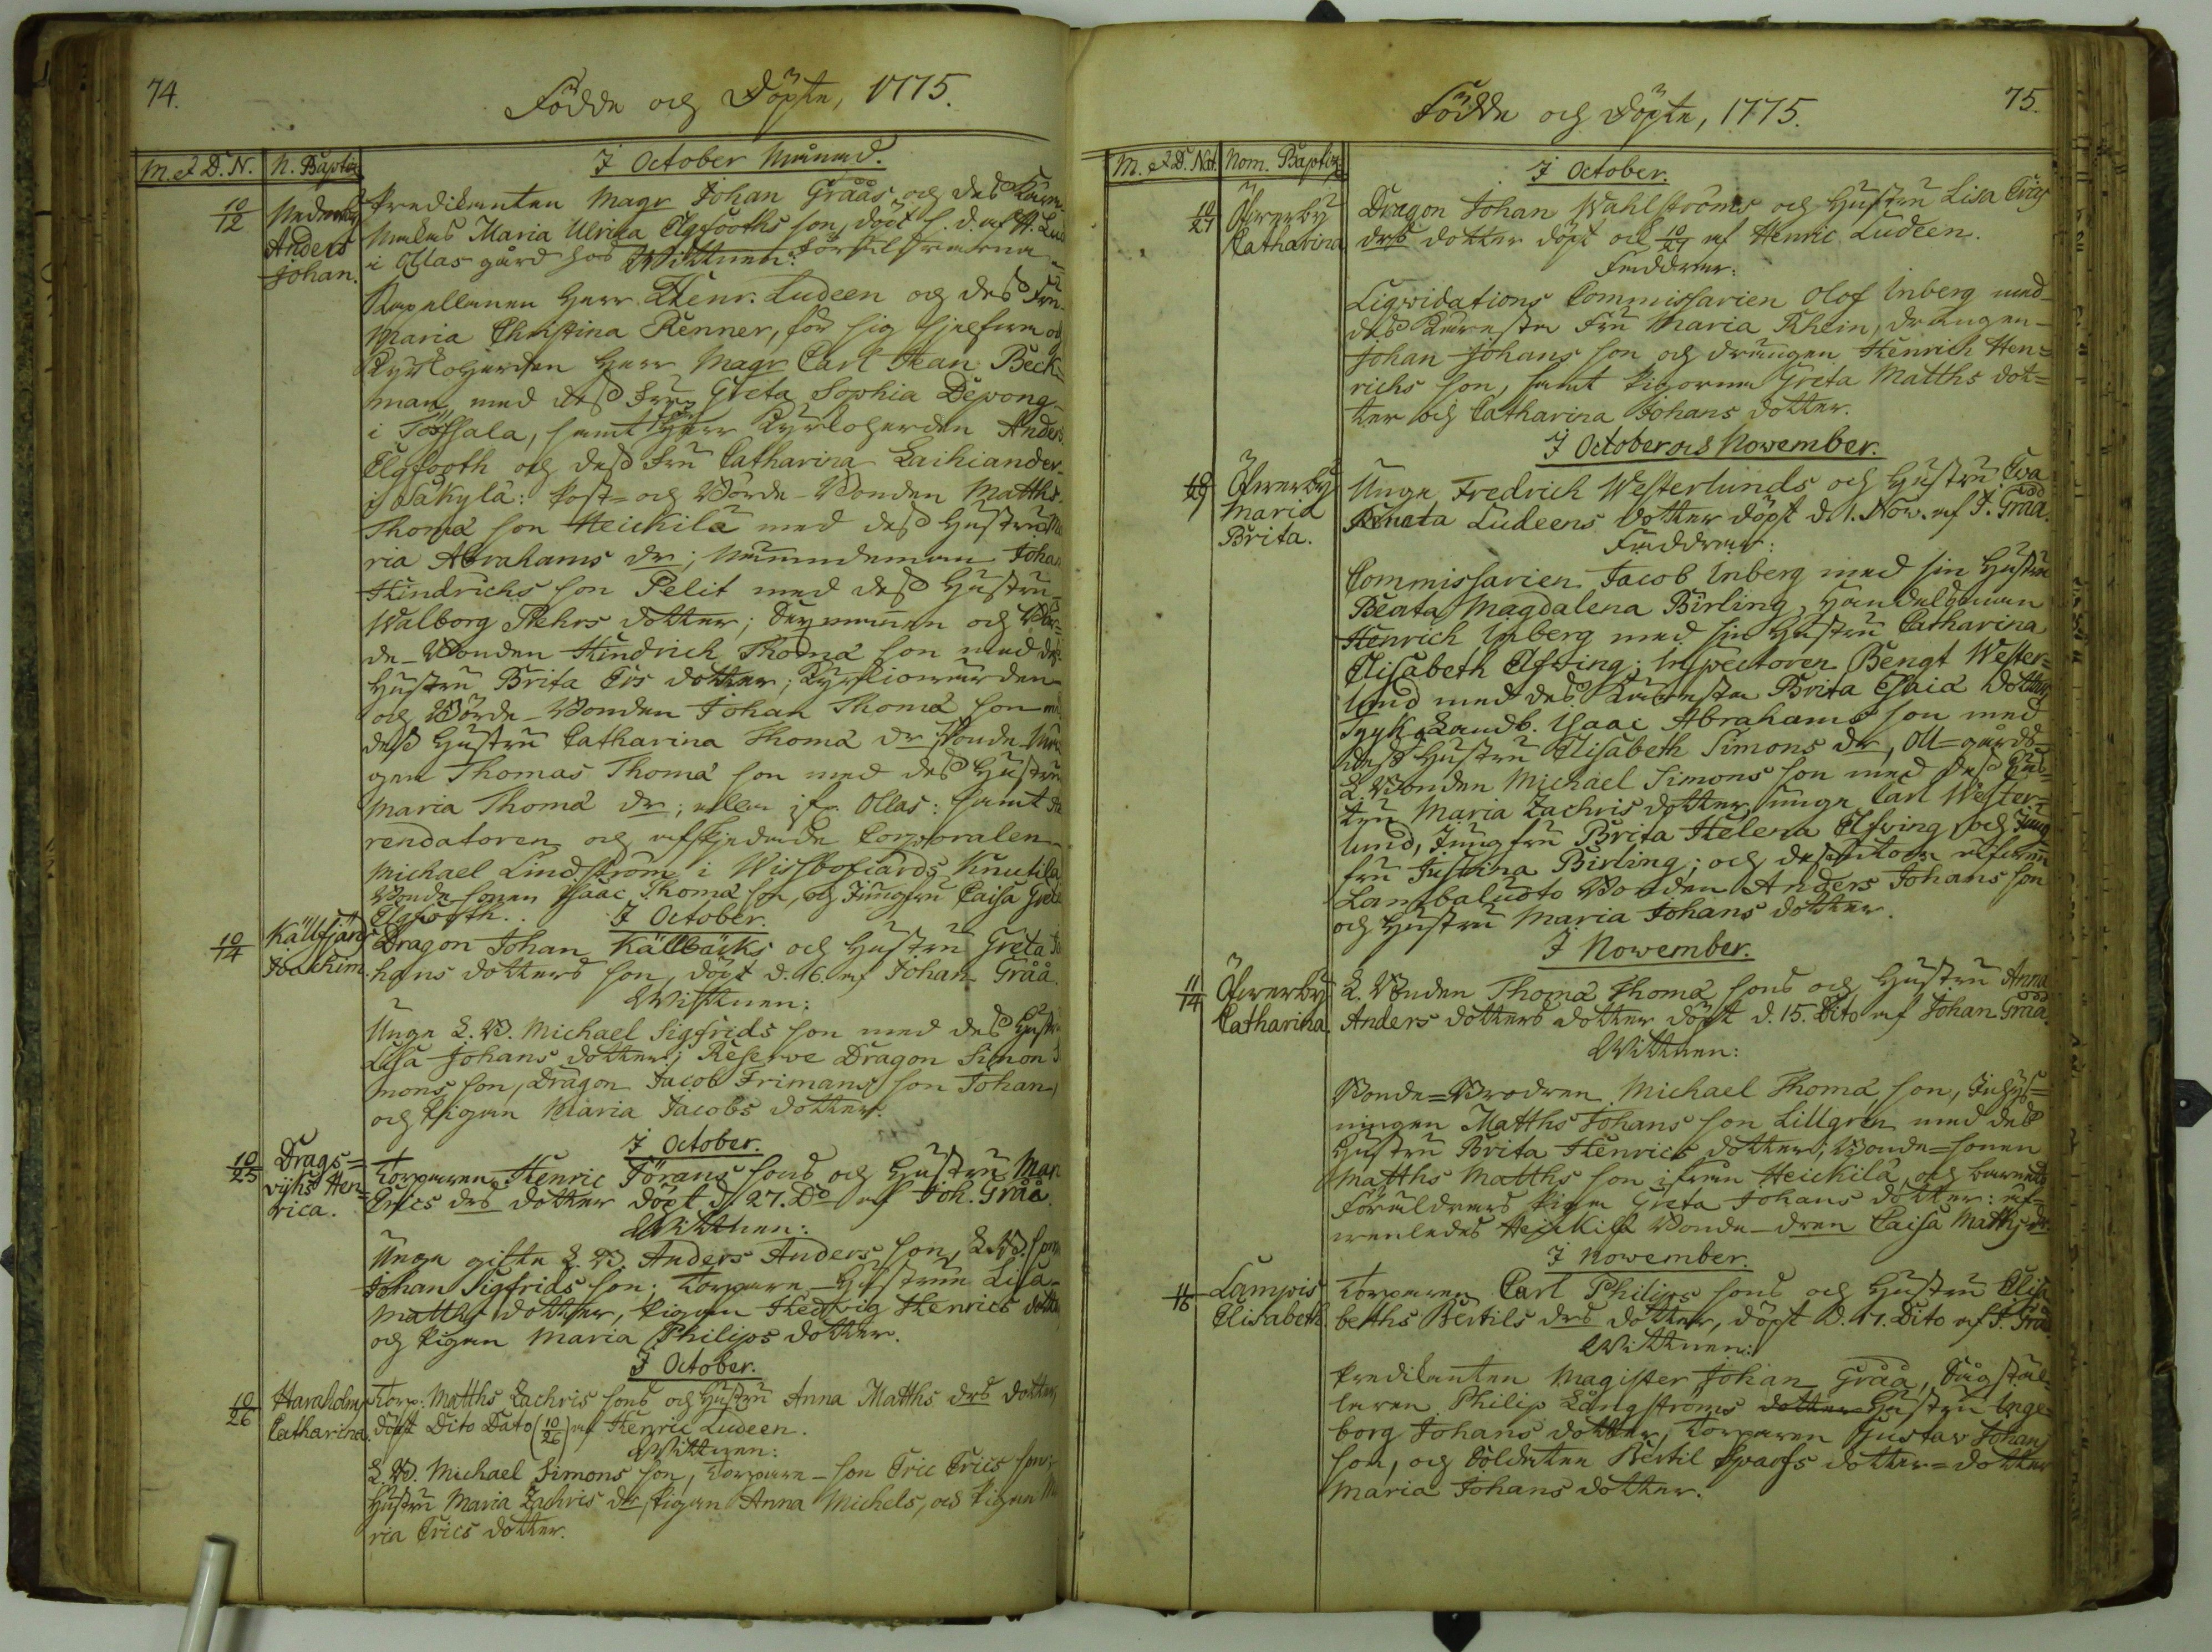 74.
Födde och Döpte, 1775.
M. & D. N. N. Baptiz.
I October Månad.
10/12 Nederby Anders Johan.
Predikanten Magr Johan Gråås och dess Kära
Makas Maria Ulrica Elgfooths son, döpt s. d. af H. Lud
i Ollas gård hos Föräldrarna
Wittnen:
Kapellanen Herr Henr. Ludeen och dess Fru
Maria Christina Renner, för sig sjelfwa och
Kyrkoherden Herr Magr Carl Beck-
man med dess Fru Greta Sophia Depong
i Töfsala, samt för Herr Kyrkoherden Anders
Elgfooth och dess Fru Catharina Laihiander
i Säkylä: Post- och Börde-Bonden Matths
Thomæ son Heickilä med dess Hustru Ma
ria Abrahams dr; Nämndeman Johan
Hindrichs son Pelit med dess Hustru
Walborg Pehrs dotter; och Bör-
de-Bonden Hindrich Thomæ son med dess
Hustru Brita Ers dotter; Kyrkiowärden
och Börde-Bonden Johan Thomæ son med
dess Hustru Catharina Thomæ dr; Bonde
gen Thomas Thomæ son med dess Hustru
Maria Thomæ dr; alla ifr. Ollas: samt
rendatoren och afskjedade Corporalen
Michael Lindström i Wissbofjärds Knutila
Bonde-sonen Isaac Thomæ son, och Jungfru Caisa Greta
Elgfooth.
I October.
10/14 Källfjärd Joachim.
Dragon Johan Källbäcks och Hustru Greta Jo
hans dotters son, döpt d. 16. af Johan Gråå.
Wittnen:
Unge L. B. Michael Sigfrids son med dess Hustru
Lisa Johans dotter; Reserve Dragon Simon Si
mons son, Dragon Jacob Frimans son Johan,
och Pigan Maria Jacobs dotter.
I October.
10/25 Drags=wijks Hen=rica.
Torparen Henric Görans sons och Hustru Mar
Erics drs dotter döpt d. 27. Do af Joh. Gråå.
Wittnen:
Unge gifte L. B. Anders Anders son, L. B. son
Johan Sigfrids son; Torpare-Hustrun Lisa
Matths dotter, Pigan Hedwig Henrics dotter
och Pigan Maria Philips dotter.
I October.
10/26 Haraholm Catharina.
Torp: Matths Zachris sons och Hustru Anna Matths drs dotter
döpt Dito Dato (10/26) af Henric Ludeen.
Wittnen:
L. B. Michael Simons son, Torpare-son Eric Erics son;
Hustru Maria Zachris dr Pigan Anna Michels, och Pigan Ma
ria Erics dotter.
75.
Födde och Döpte, 1775.
M. & D. Nat. Nom. Baptiz.
I October.
10/27 Öfwerby Catharina
Dragon Johan Wahlströms och Hustru Lisa Erics
drs dotter döpt och 10/29 af Henric Ludeen.
Faddrar:
Liqwidations Commissarien Olof Inberg med
dess Käresta Fru Maria Rhein, drängen
Johan Johans son och drängen Henrich Hen=
richs son, samt Pigorna Greta Matths dot=
ter och Catharina Johans dotter.
I October och November.
10/29 Öfwerby Maria Brita.
Unge Fredrich Westerlunds och Hustru Eva
Renata Ludeens dotter döpt d. 1. Nov. af J. Gråå.
Faddrar:
Commissarien Jacob Inberg med sin Hustru
Beata Magdalena Birling, Handelsman
Henrich Inberg med sin Hustru Catharina
Elisabeth Elfving; Inspectoren Bengt Wester=
lund med dess Käresta Brita Esaiæ dotter,
Landb. Isaac Abrahams son med
dess Hustru Elisabeth Simons dr, Oll=gårds
L. Bonden Michael Simons son med dess Hus=
tru Maria Zachris dotter, unge Carl Wester=
lund, Jungfru Brita Helena Elfving, och Jung
fru Justina Birling; och dessutom
Lambaluoto Bonden Anders Johans son
och Hustru Maria Johans dotter.
I November.
11/14 Öfwerby Catharina
L. Bonden Thomæ Thomæ sons och Hustru Anna
Anders dotters dotter döpt d. 15. Dito af Johan Gråå.
Wittnen:
Bonde=Brodren Michael Thomæ son, Inhys=
ningen Matths Johans son Lillgren med dess
Hustru Brita Henrics dotter; Bonde=sonen
Matths Matths son ifrån Heickilä och barnets
Föräldrars Piga Greta Johans dotter: af=
wenledes Heickilä Bonde-dren Caisa Matths dr.
I November.
11/16 Lampis Elisabeth.
Torparen Carl Philips sons och Hustru Elisa
beths Bertils drs dotter, döpt d. 17. Dito af J. Gråå
Wittnen:
Predikanten Magister Johan Gråå, Sågstäl=
laren Philip Långströms dotter Hustru Inge
borg Johans dotter, Torparen Gustav Johans
son, och Soldaten Bertil Sparfs dotter=dotter
Maria Johans dotter.